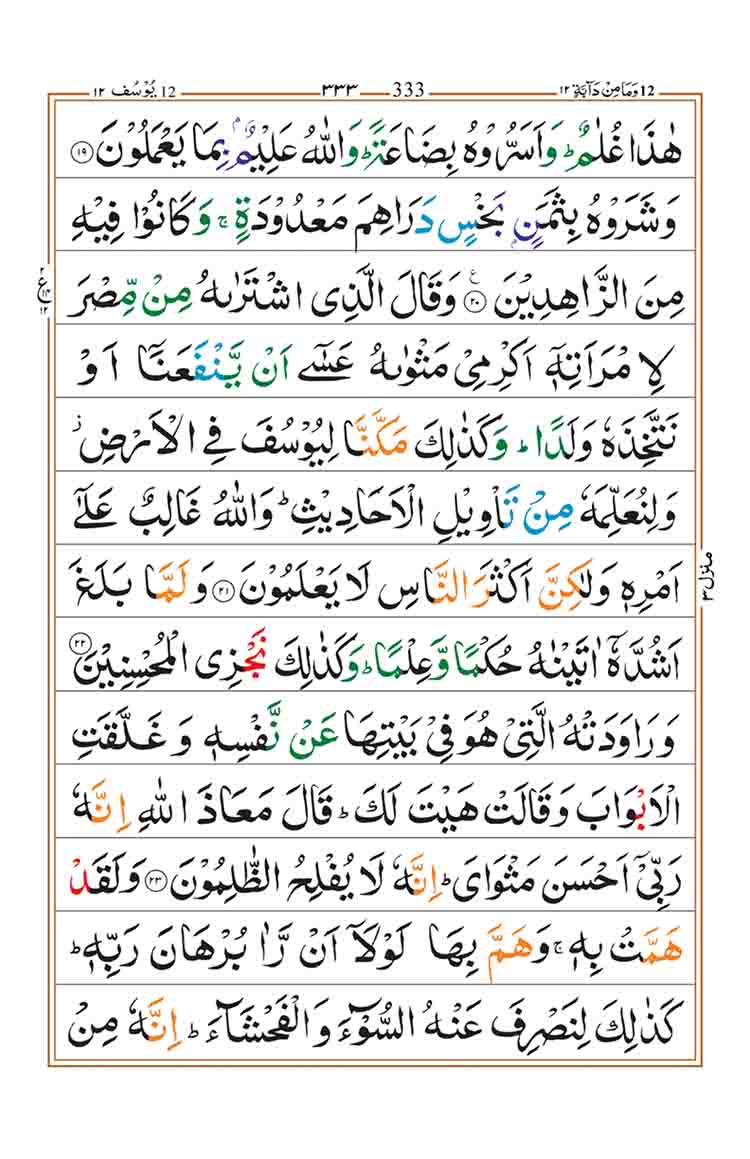 12 وَمَا مِنْ دَآبَّةٍ ١٢ 333 ٣٣٣ 12 يُوْسُف ١٢
هٰذَا غُلٰمٌ ؕ وَاَسَرُّوْهُ بِضَاعَةً ؕ وَاللّٰهُ عَلِيْمٌۢ بِمَا يَعْمَلُوْنَ ١٩
وَشَرَوْهُ بِثَمَنٍۭ بَخْسٍ دَرَاهِمَ مَعْدُوْدَةٍ ۚ وَكَانُوْا فِيْهِ
مِنَ الزَّاهِدِيْنَ ٢٠ ع وَقَالَ الَّذِى اشْتَرٰىهُ مِنْ مِّصْرَ
لِامْرَاَتِهٖٓ اَكْرِمِىْ مَثْوٰىهُ عَسٰٓى اَنْ يَّنْفَعَنَاۤ اَوْ
نَتَّخِذَهٗ وَلَدًا ؕ وَكَذٰلِكَ مَكَّنَّا لِيُوْسُفَ فِى الْاَرْضِ ز
وَلِنُعَلِّمَهٗ مِنْ تَاْوِيْلِ الْاَحَادِيْثِ ؕ وَاللّٰهُ غَالِبٌ عَلٰٓى
اَمْرِهٖ وَلٰكِنَّ اَكْثَرَ النَّاسِ لَا يَعْلَمُوْنَ ٢١ وَلَمَّا بَلَغَ
اَشُدَّهٗۤ اٰتَيْنٰهُ حُكْمًا وَّعِلْمًا ؕ وَكَذٰلِكَ نَجْزِى الْمُحْسِنِيْنَ ٢٢
وَرَاوَدَتْهُ الَّتِىْ هُوَ فِىْ بَيْتِهَا عَنْ نَّفْسِهٖ وَغَلَّقَتِ
الْاَبْوَابَ وَقَالَتْ هَيْتَ لَكَ ؕ قَالَ مَعَاذَ اللّٰهِ اِنَّهٗ
رَبِّىْۤ اَحْسَنَ مَثْوَاىَ ؕ اِنَّهٗ لَا يُفْلِحُ الظّٰلِمُوْنَ ٢٣ وَلَقَدْ
هَمَّتْ بِهٖ ۚ وَهَمَّ بِهَا لَوْلَاۤ اَنْ رَّاٰ بُرْهَانَ رَبِّهٖ ؕ
كَذٰلِكَ لِنَصْرِفَ عَنْهُ السُّوْٓءَ وَالْفَحْشَآءَ ؕ اِنَّهٗ مِنْ
ع
١٢
منزل ٣